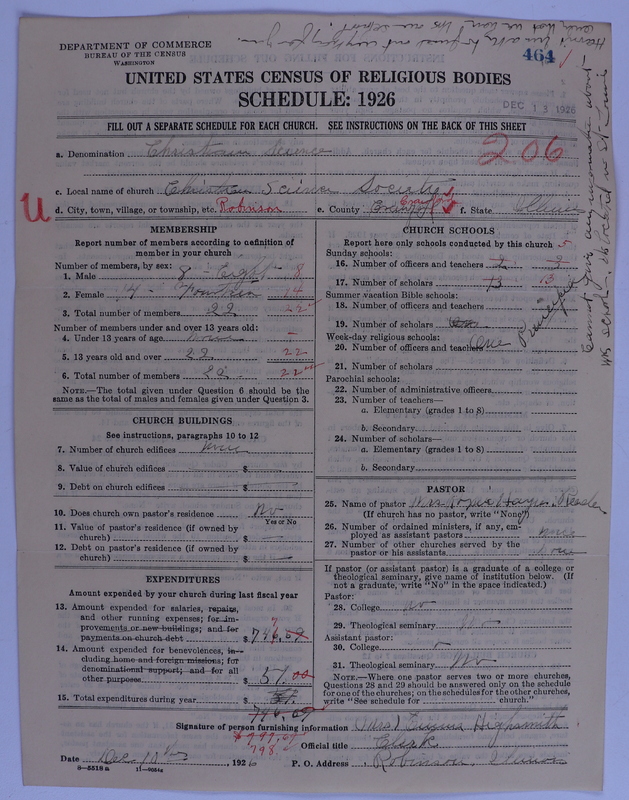 DEPARTMENT OF COMMERCE
BUREAU OF THE CENSUS
WASHINGTON
464
UNITED STATES CENSUS OF RELIGIOUS BODIES
SCHEDULE: 1926
DEC 13 1926
FILL OUT A SEPARATE SCHEDULE FOR EACH CHURCH. SEE INSTRUCTIONS ON THE BACK OF THIS SHEET
a. Denomination Christian Science
206
c. Local name of church Christian Science Society
U d. City, town, village, or township, etc. Robinson e. County Crawford f. State Illinois
MEMBERSHIP
Report number of members according to definition of
member in your church
Number of members, by sex:
1. Male 8 Eight 8
2. Female 14 - Fourteen 14
3. Total number of members 22 22
Number of members under and over 13 years old:
4. Under 13 years of age None -
5. 13 years old and over 22 22
6. Total number of members 22 22
NOTE.—The total given under Question 6 should be
same as the total of males and females given under Question 3.
CHURCH BUILDINGS
See instructions, paragraphs 10 to 12
7. Number of church edifices none
8. Value of church edifices $
9. Debt on church edifices $
10. Does church own pastor's residence No
Yes or No
11. Value of pastor's residence (if owned by
church) $
12. Debt on pastor's residence (if owned by
church) $
EXPENDITURES
Amount expended by your church during last fiscal year
13. Amount expended for salaries, repairs,
and other running expenses; for im-
provements or new buildings; and for
payments on church debt $
14. Amount expended for benevolences, in-
cluding home and foreign missions; for
denominational support; and for all
other purposes $ 51.00
15. Total expenditures during year $
798.
CHURCH SCHOOLS
Report here only schools conducted by this church
Sunday schools:
16. Number of officers and teachers
17. Number of scholars 13 13
Summer vacation Bible schools:
18. Number of officers and teachers
19. Number of scholars
Week-day religious schools:
20. Number of officers and teachers One
21. Number of scholars
Parochial schools:
22. Number of administrative officers
23. Number of teachers—
a. Elementary (grades 1 to 8)
b. Secondary
24. Number of scholars—
a. Elementary (grades 1 to 8)
b. Secondary
PASTOR
25. Name of pastor Hayes, Reader
(If church has no pastor, write "None")
26. Number of ordained ministers, if any, em-
ployed as assistant pastors none
27. Number of other churches served by the
pastor or his assistants None
If pastor (or assistant pastor) is a graduate of a college or
theological seminary, give name of institution below. (If
not a graduate, write "No" in the space indicated.)
Pastor:
28. College No
29. Theological seminary No
Assistant pastor:
30. College
31. Theological seminary No
NOTE.—Where one pastor serves two or more churches,
Questions 28 and 29 should be answered only on the schedule
for one of the churches; on the schedules for the other churches,
write "See schedule for church."
Signature of person furnishing information (Mrs) Highsmith
Official title Clerk
Date Dec. 10th, 1926 P. O. Address Robinson, Illinois
8—5518 a 11—9084a